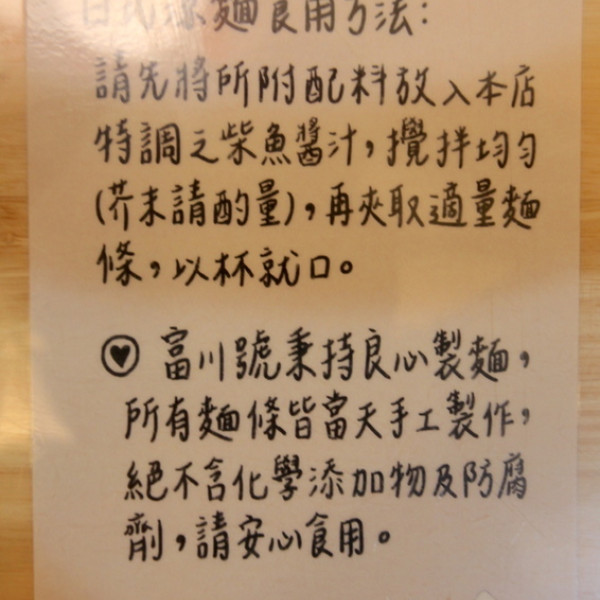 日式涼麵食用方法:
請先將所附配料放入本店
特調之柴魚醬汁,攪拌均勻
(芥末請酌量),再夾取適量麵
條,以杯就口。
富川號秉持良心製麵,
所有麵條皆當天手工製作,
絕不含化學添加物及防腐
劑,請安心食用。